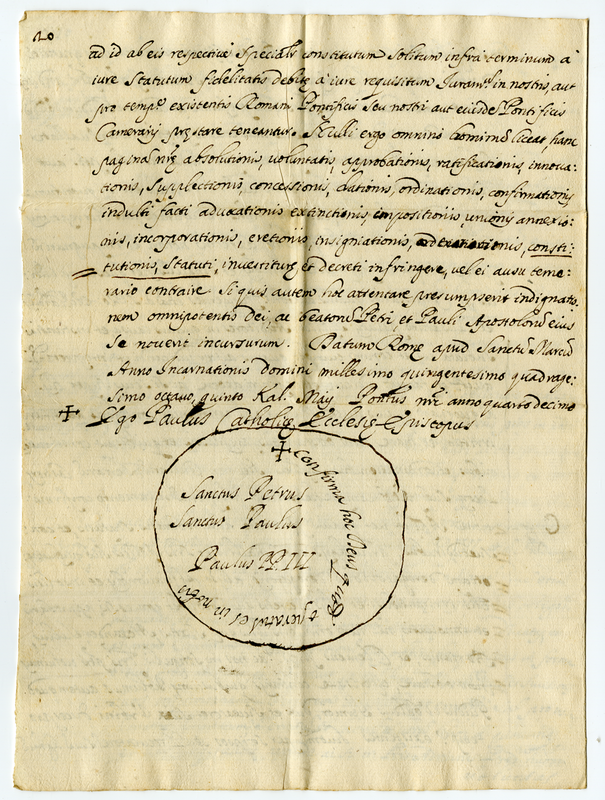 20
ad id ab eis respectivè specialr constitutum solitum infra terminum à
iure statutum fidelitatis debitę à iure requisitum Juramm in nostris, aut
pro tempe existentis Romani Pontificis seu nostri aut eiusdē Pontificis
Camerarij pręstare teneantur. Nulli ergo omnino hominū liceat hanc
paginā nrę absolutionis, voluntatis, approbationis, ratificationis, innova:
tionis, supplectionis, concessionis, dationis, ordinationis, confirmationis
indulti facti advocationis extinctionis impositionis unionis annexio:
nis, incorporationis, erectionis, insignationis, consti:
tutionis, statuti, investiturę et decreti infringere, vel ei ausu teme:
rario contraire. Si quis autem hoc attentare presumpserit indignatio
nem omnipotentis dei, ac beatorū Petri et Pauli Apostolorū eius
se noverit incursurum. Datum Romę apud Sanctū Marcū
Anno Incarnationis domini millesimo quingentesimo quadrage:
simo octavo, quinto Kal. Maij Pontus nri anno quarto decimo
✠ Ego Paulus Catholicę Ecclesię Episcopus
✠ Confirma hoc Deus quod operatus es in nobis
Sanctus Petrus
Sanctus Paulus
Paulus PP. III